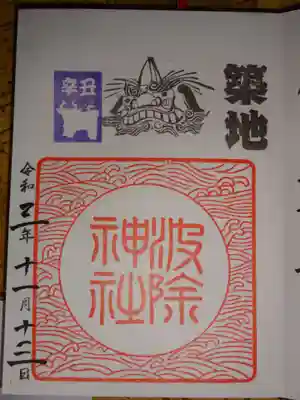 築地
辛丑
波除神社
令和三年十一月十二日